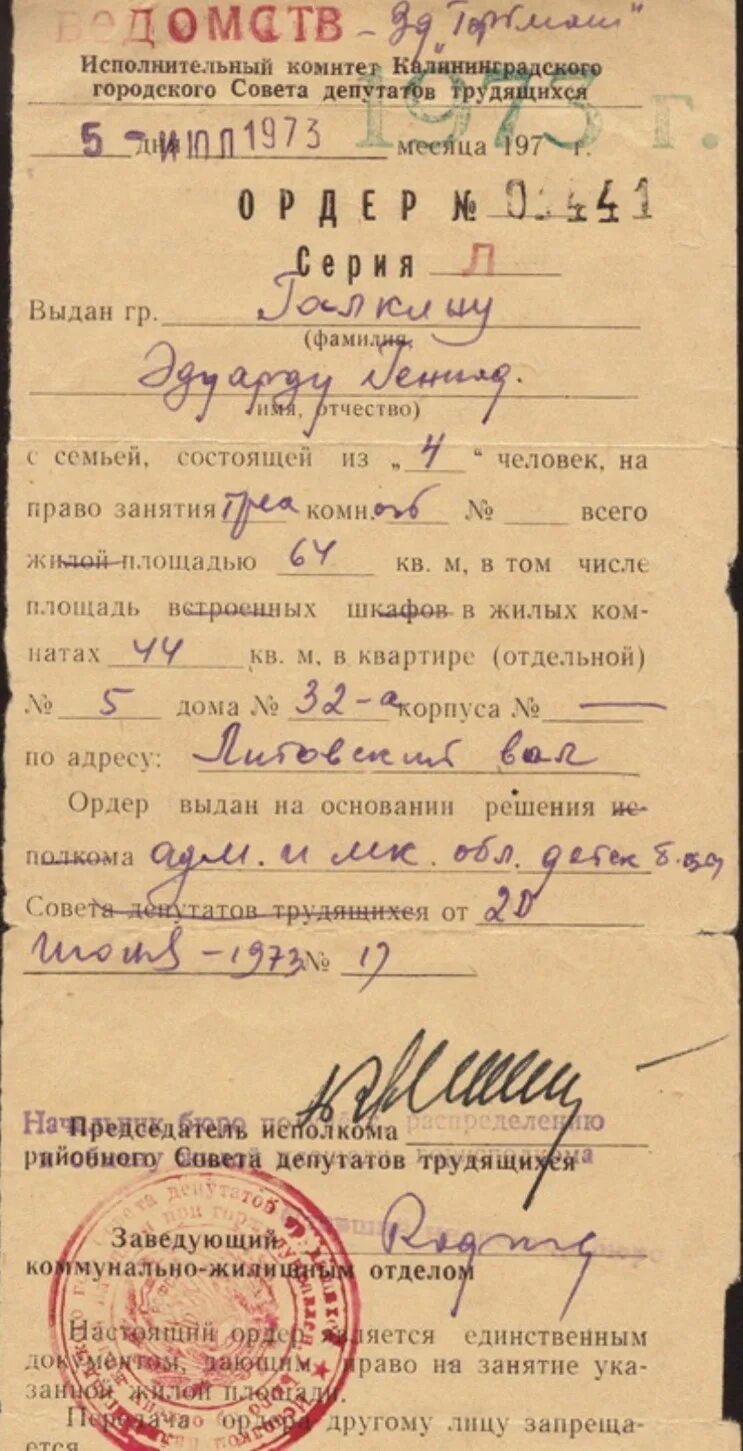 ВЕДОМСТВ - Зд "Торгмаш"
Исполнительный комитет Калининградского
городского Совета депутатов трудящихся
1973 г.
5 - дня ИЮЛ 1973 месяца 197 г.
ОРДЕР № 01441
Серия Л
Выдан гр. Галкину
(фамилия,
Эдуарду Геннад.
имя, отчество)
с семьей, состоящей из „ 4 “ человек, на
право занятия трех комн. отд № всего
жилой площадью 64 кв. м, в том числе
площадь встроенных шкафов в жилых ком-
натах 44 кв. м, в квартире (отдельной)
№ 5 дома № 32-а корпуса № —
по адресу: Литовский вал
Ордер выдан на основании решения ис-
полкома адм. и мк. обл. детск б-цы
Совета депутатов трудящихся от 20
июня - 1973 № 17
Начальник бюро распределению
Председатель исполкома
районного Совета депутатов трудящихся
Заведующий
коммунально-жилищным отделом
Настоящий ордер является единственным
документом, дающим право на занятие ука-
занной жилой площади.
Передача ордера другому лицу запрещa-
ется